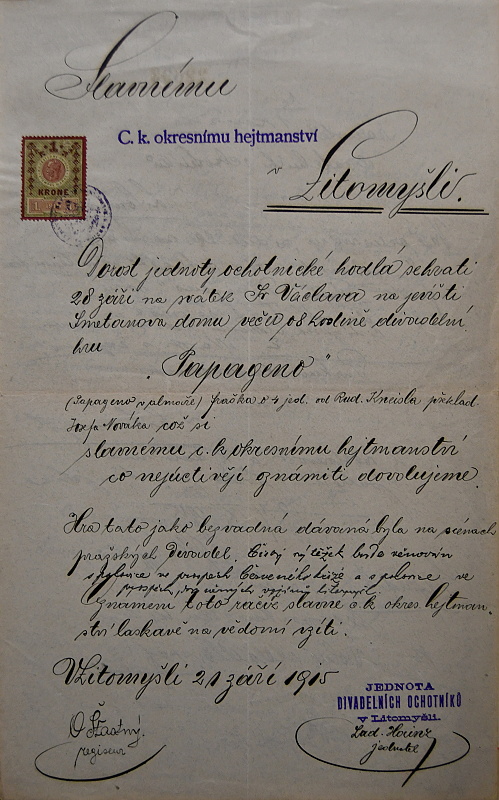 Slavnému
C. k. okresnímu hejtmanství
v
Litomyšli.
1
KRONE
Dorost jednoty ochotnické hodlá sehrati
28 září na svátek Sv Václava na jevišti
Smetanova domu večer o 8 hodině divadelní
hru
„Papageno“
(Papageno v almaře) fraška o 4 jed. od Rud. Kneisla překlad
Josefa Nováka což si
slavnému c. k okresnímu hejtmanství
co nejuctivěji oznámiti dovolujeme.
Hra tato jako bezvadná dávána byla na scénách
pražských divadel. Čistý výtěžek bude věnován
s polovice ve prospěch Červeného kříže a s polovice ve
prospěch
Oznámení toto račiž slavné c. k okres. hejtman-
ství laskavě na vědomí vzíti.
V Litomyšli 21 září 1915
JEDNOTA
DIVADELNÍCH OCHOTNÍKŮ
v Litomyšli.
O Šťastný.
regiseur
Lad.
jednatel